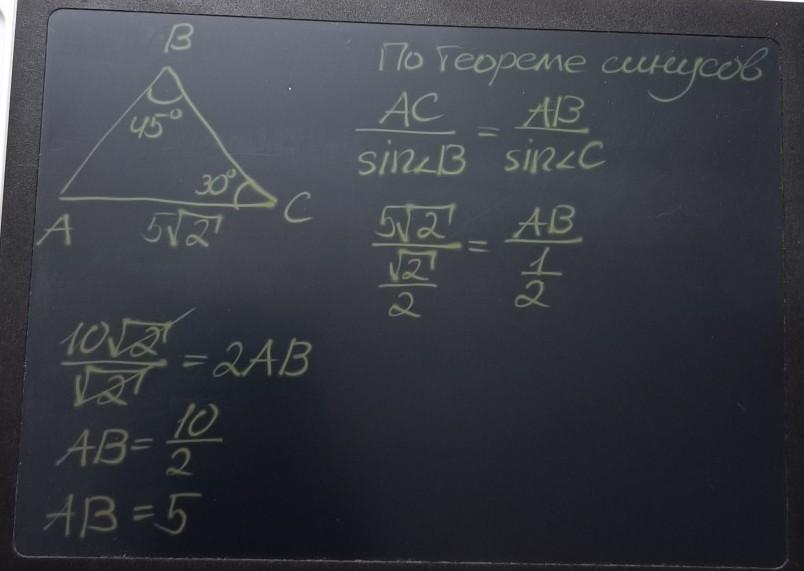 B
45°
30°
A
C
5√2
По теореме синусов
AC/sin∠B = AB/sin∠C
5√2/(√2/2) = AB/(1/2)
10√2/√2 = 2AB
AB = 10/2
AB = 5